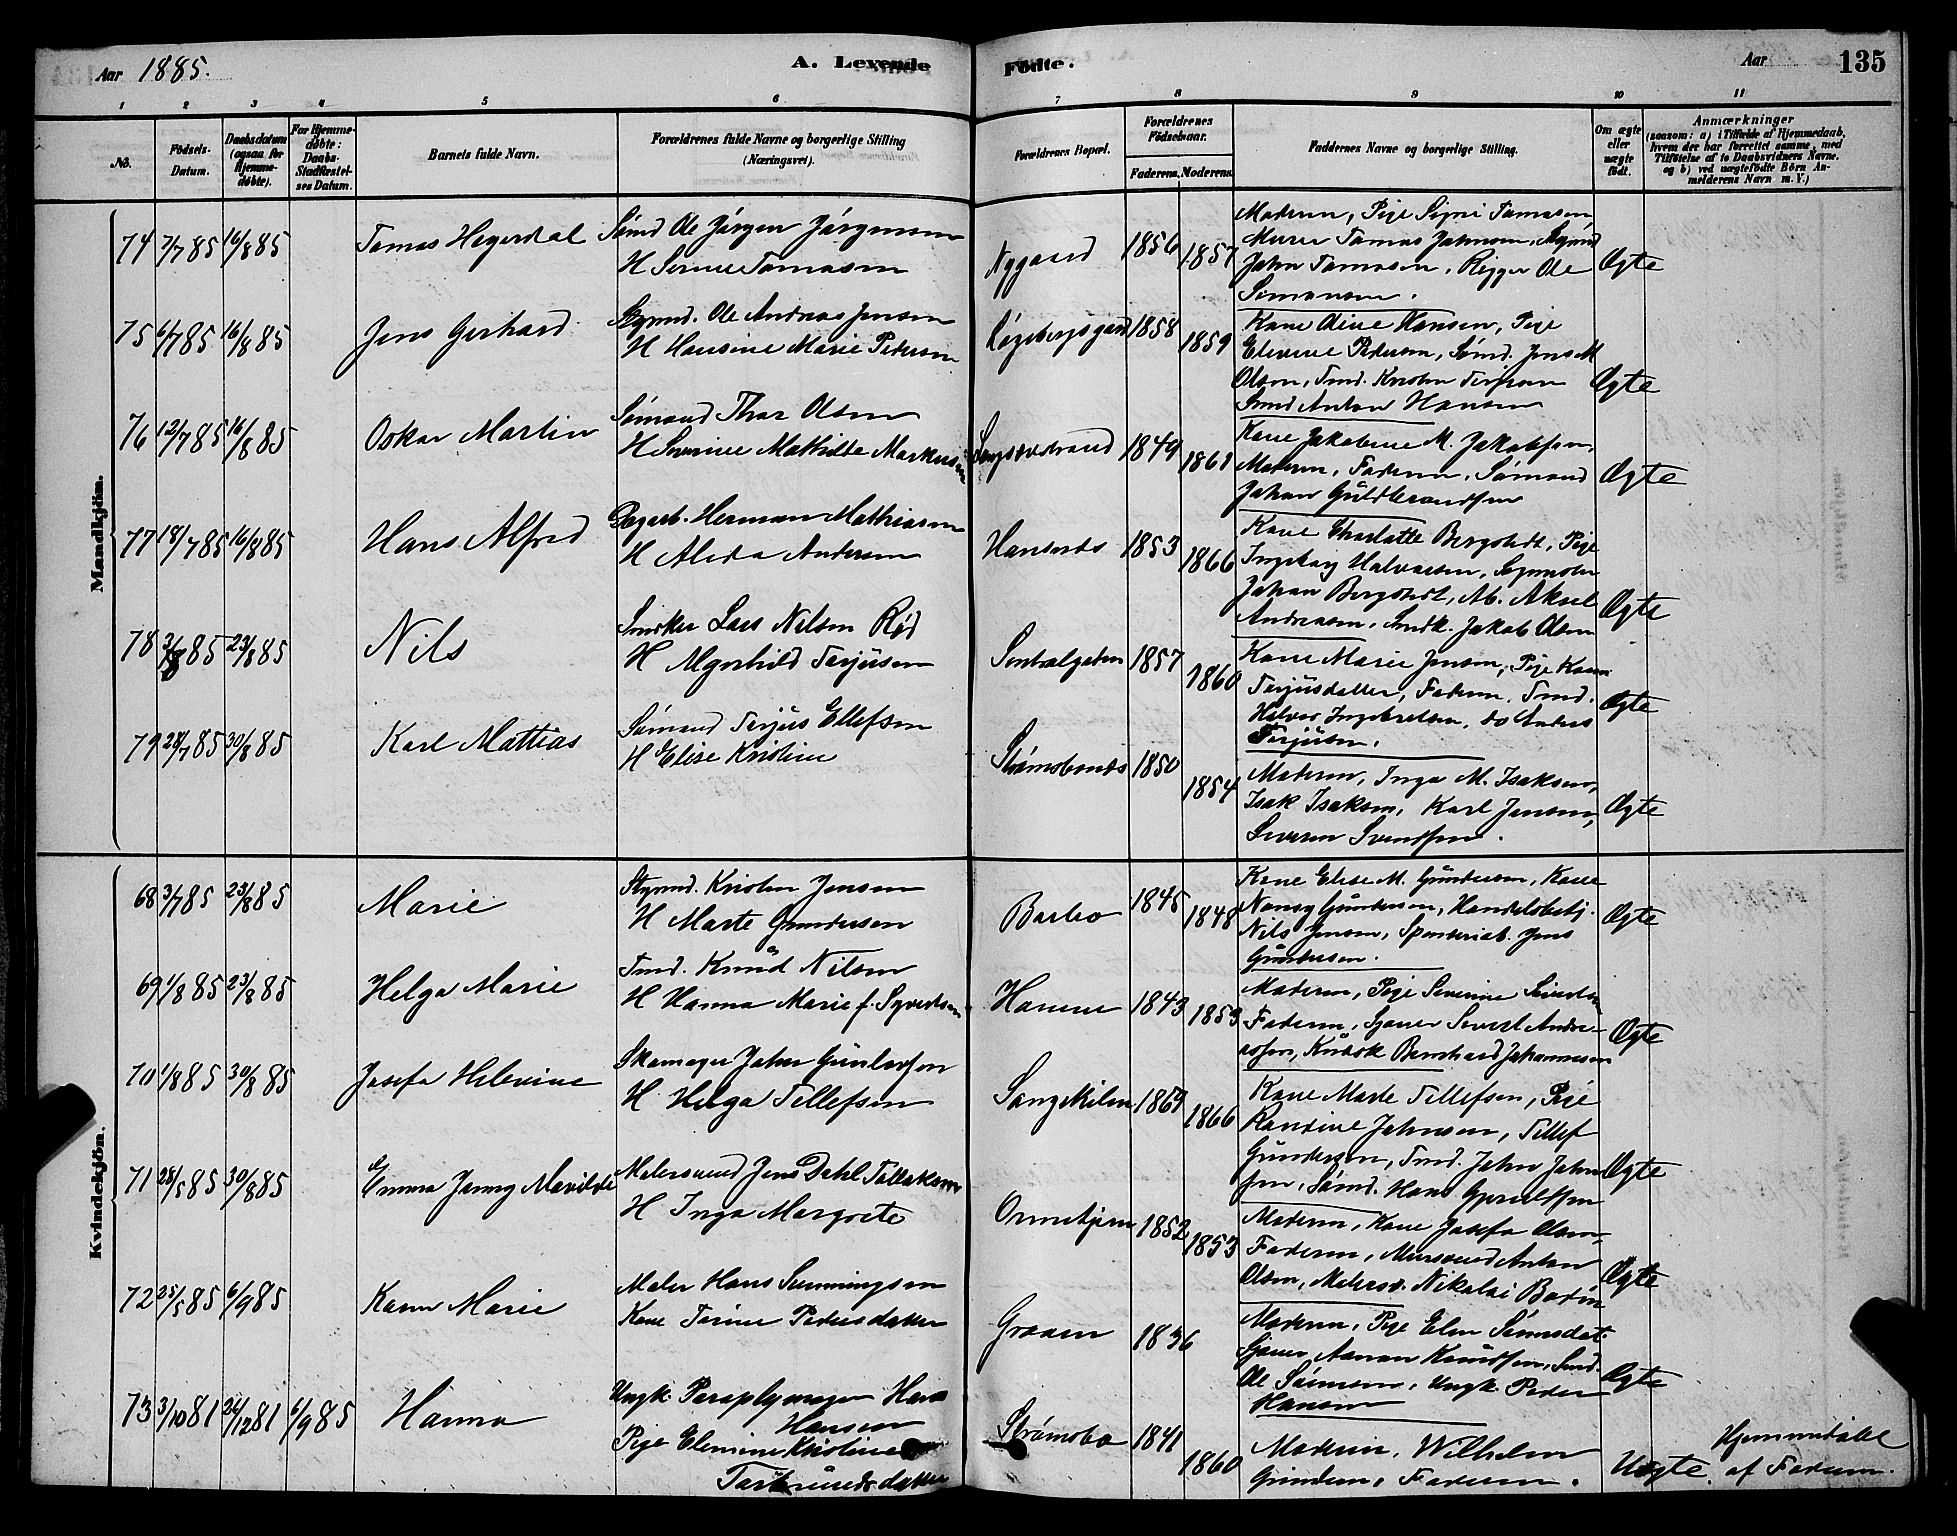 Aar 1885.
A. Levende
Fødte.
Aar
135
1 2 3 4 5 6 7 8 9 10 11
No.
Fødsels-Datum.
Daabsdatum (ogsaa for Hjemmedøbte).
For Hjemmedøbte: Daabs-Stadfæstelses Datum.
Barnets fulde Navn.
Forældrenes fulde Navne og borgerlige Stilling (Næringsvei).
Forældrenes Bopæl.
Forældrenes Fødselsaar.
Faderens. Moderens.
Faddernes Navne og borgerlige Stilling.
Om ægte eller uægte født.
Anmærkninger
(saasom: a) i Tilfælde af Hjemmedaab,
hvem der har forrettet samme, med
Tilføielse af to Daabsvidners Navne.
og b) ved uægtefødte Børn An-
melderens Navn m. V.)
Mandkjøn.
74 7/7 85 16/8 85 Tomas Hegerdal
Sømd Ole Jørgen Jørgensen
H Serine Tomasen
Nygaard 1856 1857
Moderen, Pige Signe Tomasen
Murer Tomas Johnsen,
John Tomasen, Rigger Ole
Simonsen.
Ægte
75 6/7 85 16/8 85 Jens Gerhard
Styrmd. Ole Andreas Jensen
H Hansine Marie Pedersen
1858 1859
Kone Oline Hansen, Pige
Elevine Pedersen, Sømd. Jens M
Olsen, Tmd. Kristen Terjesen
Smd Anton Hansen
Ægte
76 12/7 85 16/8 85 Oskar Martin
Sømand Thor Olsen
H Severine Mathilde Markusen
Langsæstrand 1849 1861
Kone Jakobine M. Jakobsen,
Moderen, Faderen, Sømand
Johan Guldbrandsen
Ægte
77 18/7 85 16/8 85 Hans Alfred
Herman Mathiasen
H Alida Andersen
1853 1866
Kone Charlotte Bergstedt, Pige
Ingeborg Halvorsen,
Johan Bergstedt, Ab. Aksel
Andreasen, Smdk. Jakob Olsen
Ægte
78 3/8 85 23/8 85 Nils
Snedker Lars Nilsen Rød
H Agnhild Terjusen
Sentralgaden 1857 1860
Kone Marie Jensen, Pige Karen
Terjusdatter, Faderen, Tmd.
Halvor Ingebretsen, do Anders
Terjusen.
Ægte
79 85 30/8 85 Karl Mattias
Sømand Terjus Ellefsen
H Elise Kristine
Strømsbonds 1850 1854
Moderen, Inga M. Isaksen,
Isak Isaksen, Karl Jensen,
Severin Svendsen.
Ægte
Kvindekjøn.
68 3/7 85 23/8 85 Marie
Styrmd. Kristen Jensen
H Marte Gundersen
Barbo 1845 1848
Kone Elise M. Gundersen, Kone
Nansy Gundersen, Handelsbetj.
Nils Jensen, Jens
Gundersen.
Ægte
69 1/8 85 23/8 85 Helga Marie
Tmd. Knud Nilsen
H Hanna Marie f. Syvertsen
1843 1853
Moderen, Pige Severine Sivertsen
Faderen, Sjauer Sivert Andre-
assen, Bernhard Johannesen
Ægte
70 1/8 85 30/8 85 Josefa Helevine
Skomager John Gundersen
H Helga Tellefsen
Songekilen 1866
Kone Marte Tellefsen, Pige
Randine Johnsen, Tellef
Gundersen, Tmd. John John-
sen, Sømd. Hans
Ægte
71 28/5 85 30/8 85 Emma Jenny Mavilde
Malersvend Jens Dahl Tallaksen
H Inga Margrete
1852 1853
Moderen, Kone Josefa Olsen,
Faderen, Mursvend Anton
Olsen, Malersv. Nikolai
Ægte
72 25/5 85 6/9 85 Karen Marie
Maler Hans Svenningsen
Kone Torine Pedersdatter
Graaen 1836
Moderen, Pige Elen Sørensdat.
Sjauer Aanon Knudsen, Smd.
Ole Sørensen, Ungk. Peder
Hansen
Ægte
73 3/10 81 26/12 81 6/9 85 Hanna
Ungk. Paraplymager Hans
Hansen
Pige Elemine Kristine
Strømsbo 1841 1860
Moderen, Wilhelm
Gundersen, Faderen.
Uægte.
Hjemmedøbt
af Faderen.